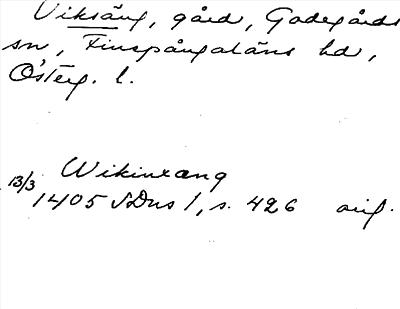 Viksäng, gård, Godegårds
sn, Finspångaläns hd,
Österg. l.
Wikinxang
13/3 1405 SDns 1, s. 426 orig.